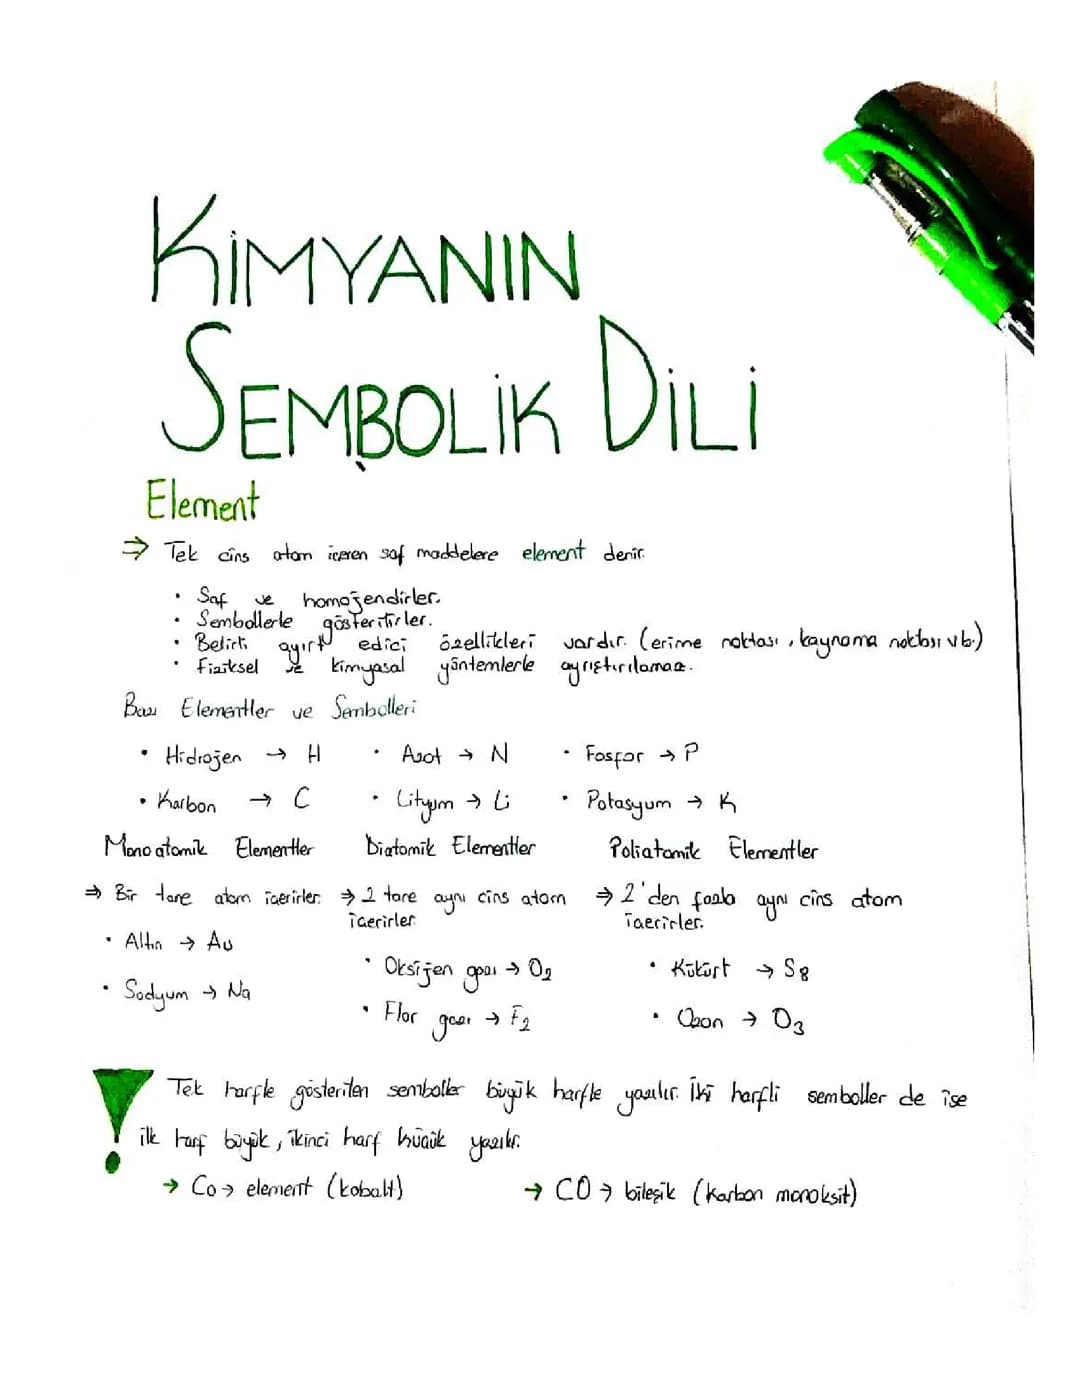 KİMYANIN
SEMBOLİK DİLİ
Element
⇒ Tek cins atom içeren saf maddelere element denir.
• Saf ve homojendirler.
• Sembollerle gösterilirler.
• Belirli ayırt edici özellikleri vardır. (erime noktası, kaynama noktası vb.)
• Fiziksel ve kimyasal yöntemlerle ayrıştırılamaz.
Bazı Elementler ve Sembolleri
• Hidrojen → H • Azot → N • Fosfor → P
• Karbon → C • Lityum → Li • Potasyum → K
Monoatomik Elementler Diatomik Elementler Poliatomik Elementler
⇒ Bir tane atom içerirler. ⇒ 2 tane aynı cins atom ⇒ 2'den fazla aynı cins atom
içerirler. içerirler.
• Altın → Au
• Oksijen gazı → O₂ • Kükürt → S8
• Sodyum → Na
• Flor gazı → F₂ • Ozon → O3
! Tek harfle gösterilen semboller büyük harfle yazılır. İki harfli semboller de ise
ilk harf büyük, ikinci harf küçük yazılır.
→ Co → element (kobalt) → CO → bileşik (karbon monoksit)